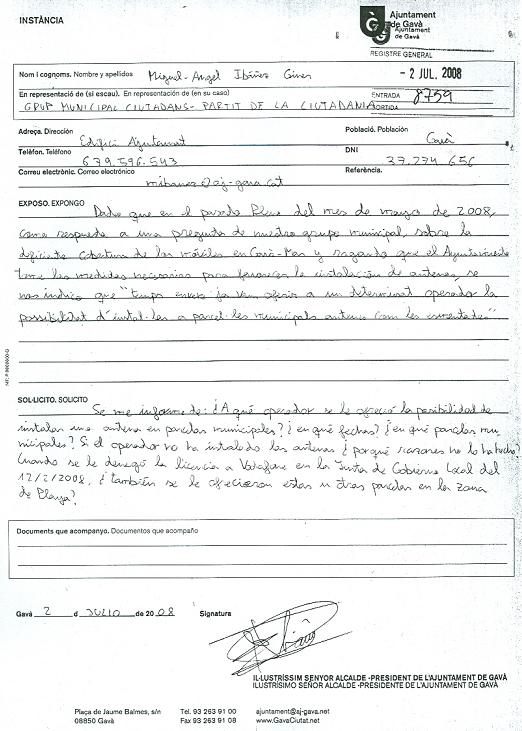 INSTÀNCIA
Ajuntament
de Gavà
Ajuntament
de Gavà
REGISTRE GENERAL
Nom i cognoms. Nombre y apellidos Miguel-Angel Ibáñez Giner
- 2 JUL. 2008
En representació de (si escau). En representación de (en su caso)
ENTRADA 8759
GRUP MUNICIPAL CIUTADANS - PARTIT DE LA CIUTADANIA
SORTIDA
Adreça. Dirección
Població. Población
Edifici Ajuntament
Gavà
Telèfon. Teléfono
DNI
679.596.543
37.774.656
Correu electrònic. Correo electrónico
Referència.
mibanez@aj-gava.cat
EXPOSO. EXPONGO
Dado que en el pasado Pleno del mes de mayo de 2008,
como respuesta a una pregunta de nuestro grupo municipal, sobre la
deficiente cobertura de los móviles en Gavà-Mar y rogando que el Ayuntamiento
tome las medidas necesarias para favorecer la instalación de antenas, se
nos indico que "temps enrera ja van oferir a un determinat operador la
possibilitat d'instal·lar a parcel·les municipals antenes com les esmentades"
SOL·LICITO. SOLICITO
Se me informe de: ¿A qué operador se le ofreció la posibilidad de
instalar una antena en parcelas municipales? ¿en qué fechas? ¿en qué parcelas mu
nicipales? Si el operador no ha instalado las antenas ¿porqué razones no lo ha hecho?
Cuando se le denegó la licencia a Vodafone en la Junta de Gobierno Local del
12/2/2008, ¿también se le ofrecieron estas u otras parcelas en la zona
de Playa?
Documents que acompanyo. Documentos que acompaño
Gavà 2 d JULIO de 2008 Signatura
IL·LUSTRÍSSIM SENYOR ALCALDE -PRESIDENT DE L'AJUNTAMENT DE GAVÀ
ILUSTRÍSIMO SEÑOR ALCALDE -PRESIDENTE DE L'AJUNTAMENT DE GAVÀ
Plaça de Jaume Balmes, s/n Tel. 93 263 91 00 ajuntament@aj-gava.net
08850 Gavà Fax 93 263 91 08 www.GavaCiutat.net